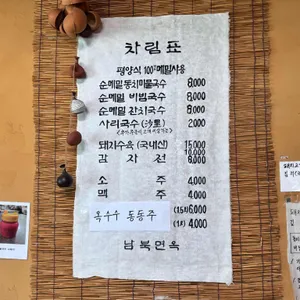 차림표
평양식 100% 메밀사용
순메밀 동치미물국수 8,000
순메밀 비빔국수 8,000
순메밀 잔치국수 8,000
사리국수 (沙里) 2,000
돼지수육 (국내산) 15,000
감자전 10,000
6,000
소주 4,000
맥주 4,000
옥수수 동동주 (1.5ℓ) 6,000
(1ℓ) 4,000
남북면옥